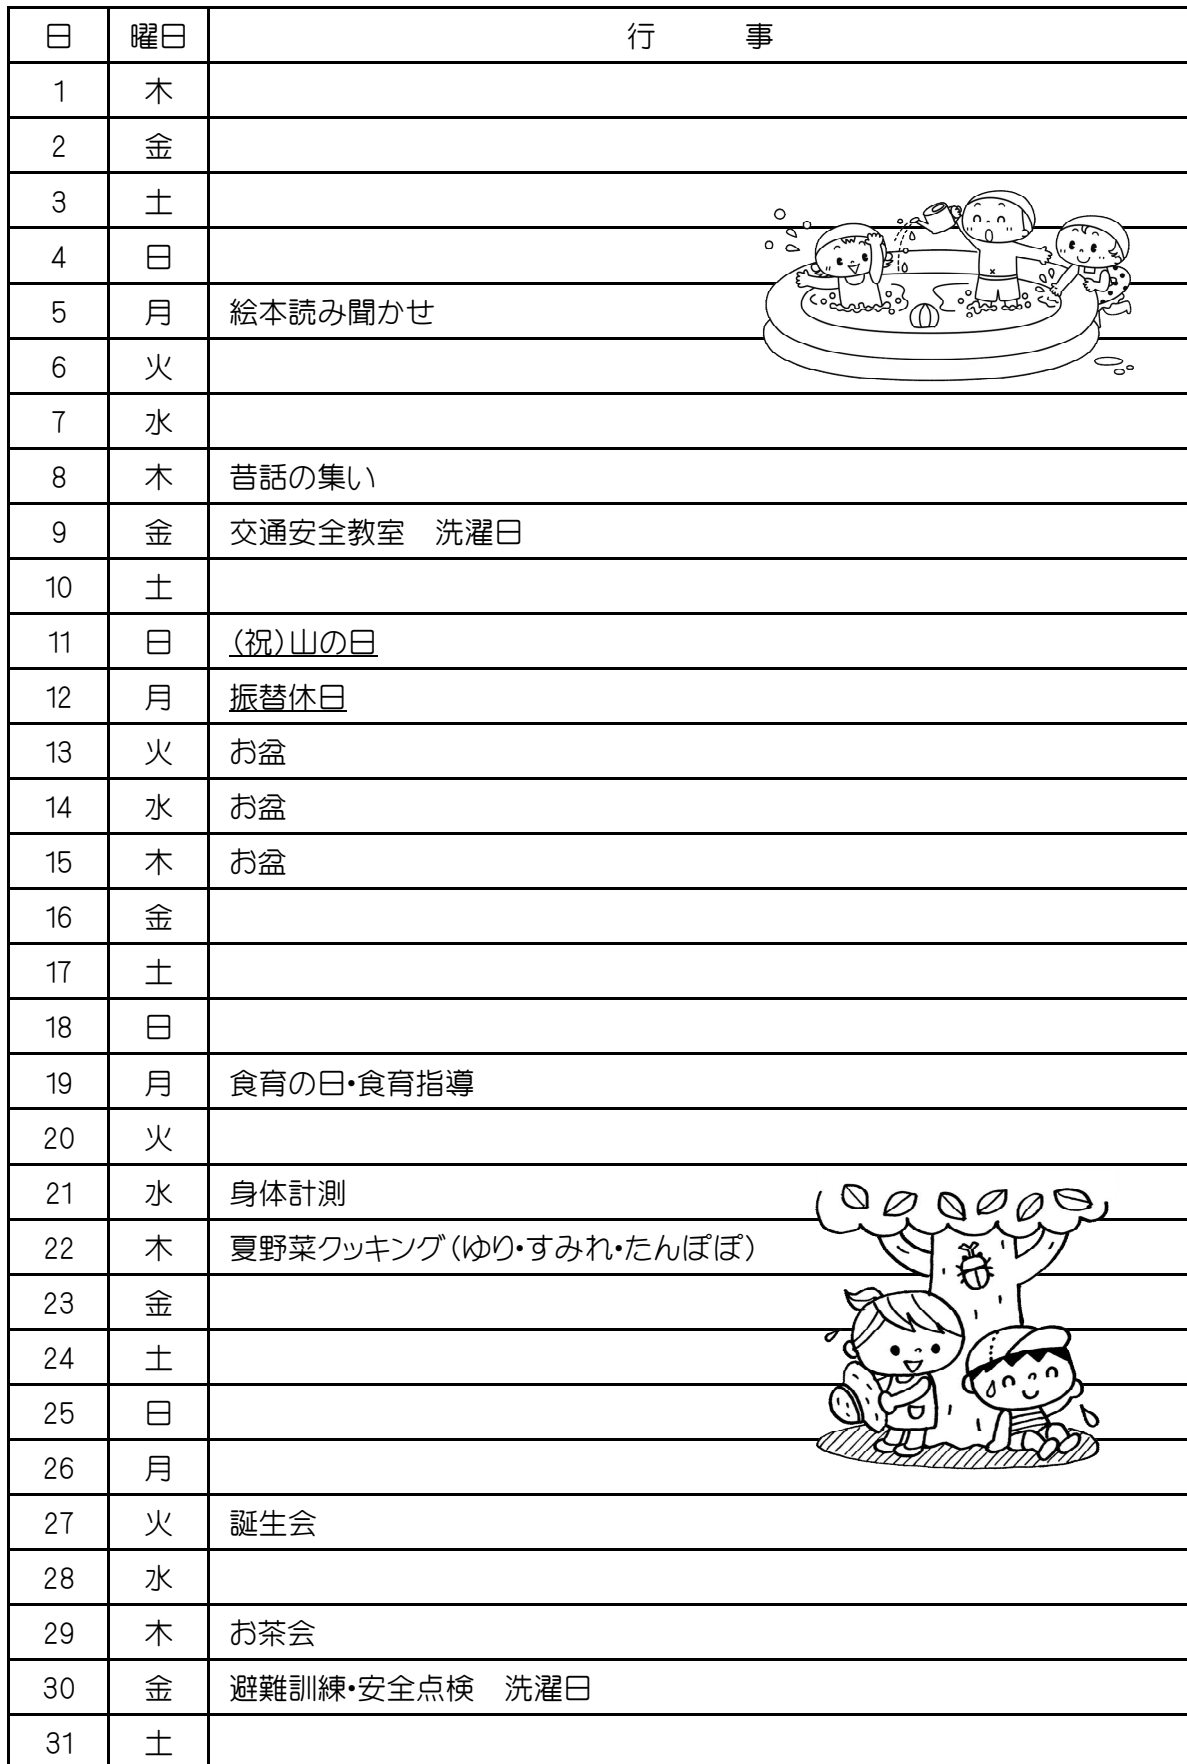 日 曜日 行 事
1 木
2 金
3 土
4 日
5 月 絵本読み聞かせ
6 火
7 水
8 木 昔話の集い
9 金 交通安全教室 洗濯日
10 土
11 日 (祝)山の日
12 月 振替休日
13 火 お盆
14 水 お盆
15 木 お盆
16 金
17 土
18 日
19 月 食育の日・食育指導
20 火
21 水 身体計測
22 木 夏野菜クッキング(ゆり・すみれ・たんぽぽ)
23 金
24 土
25 日
26 月
27 火 誕生会
28 水
29 木 お茶会
30 金 避難訓練・安全点検 洗濯日
31 土